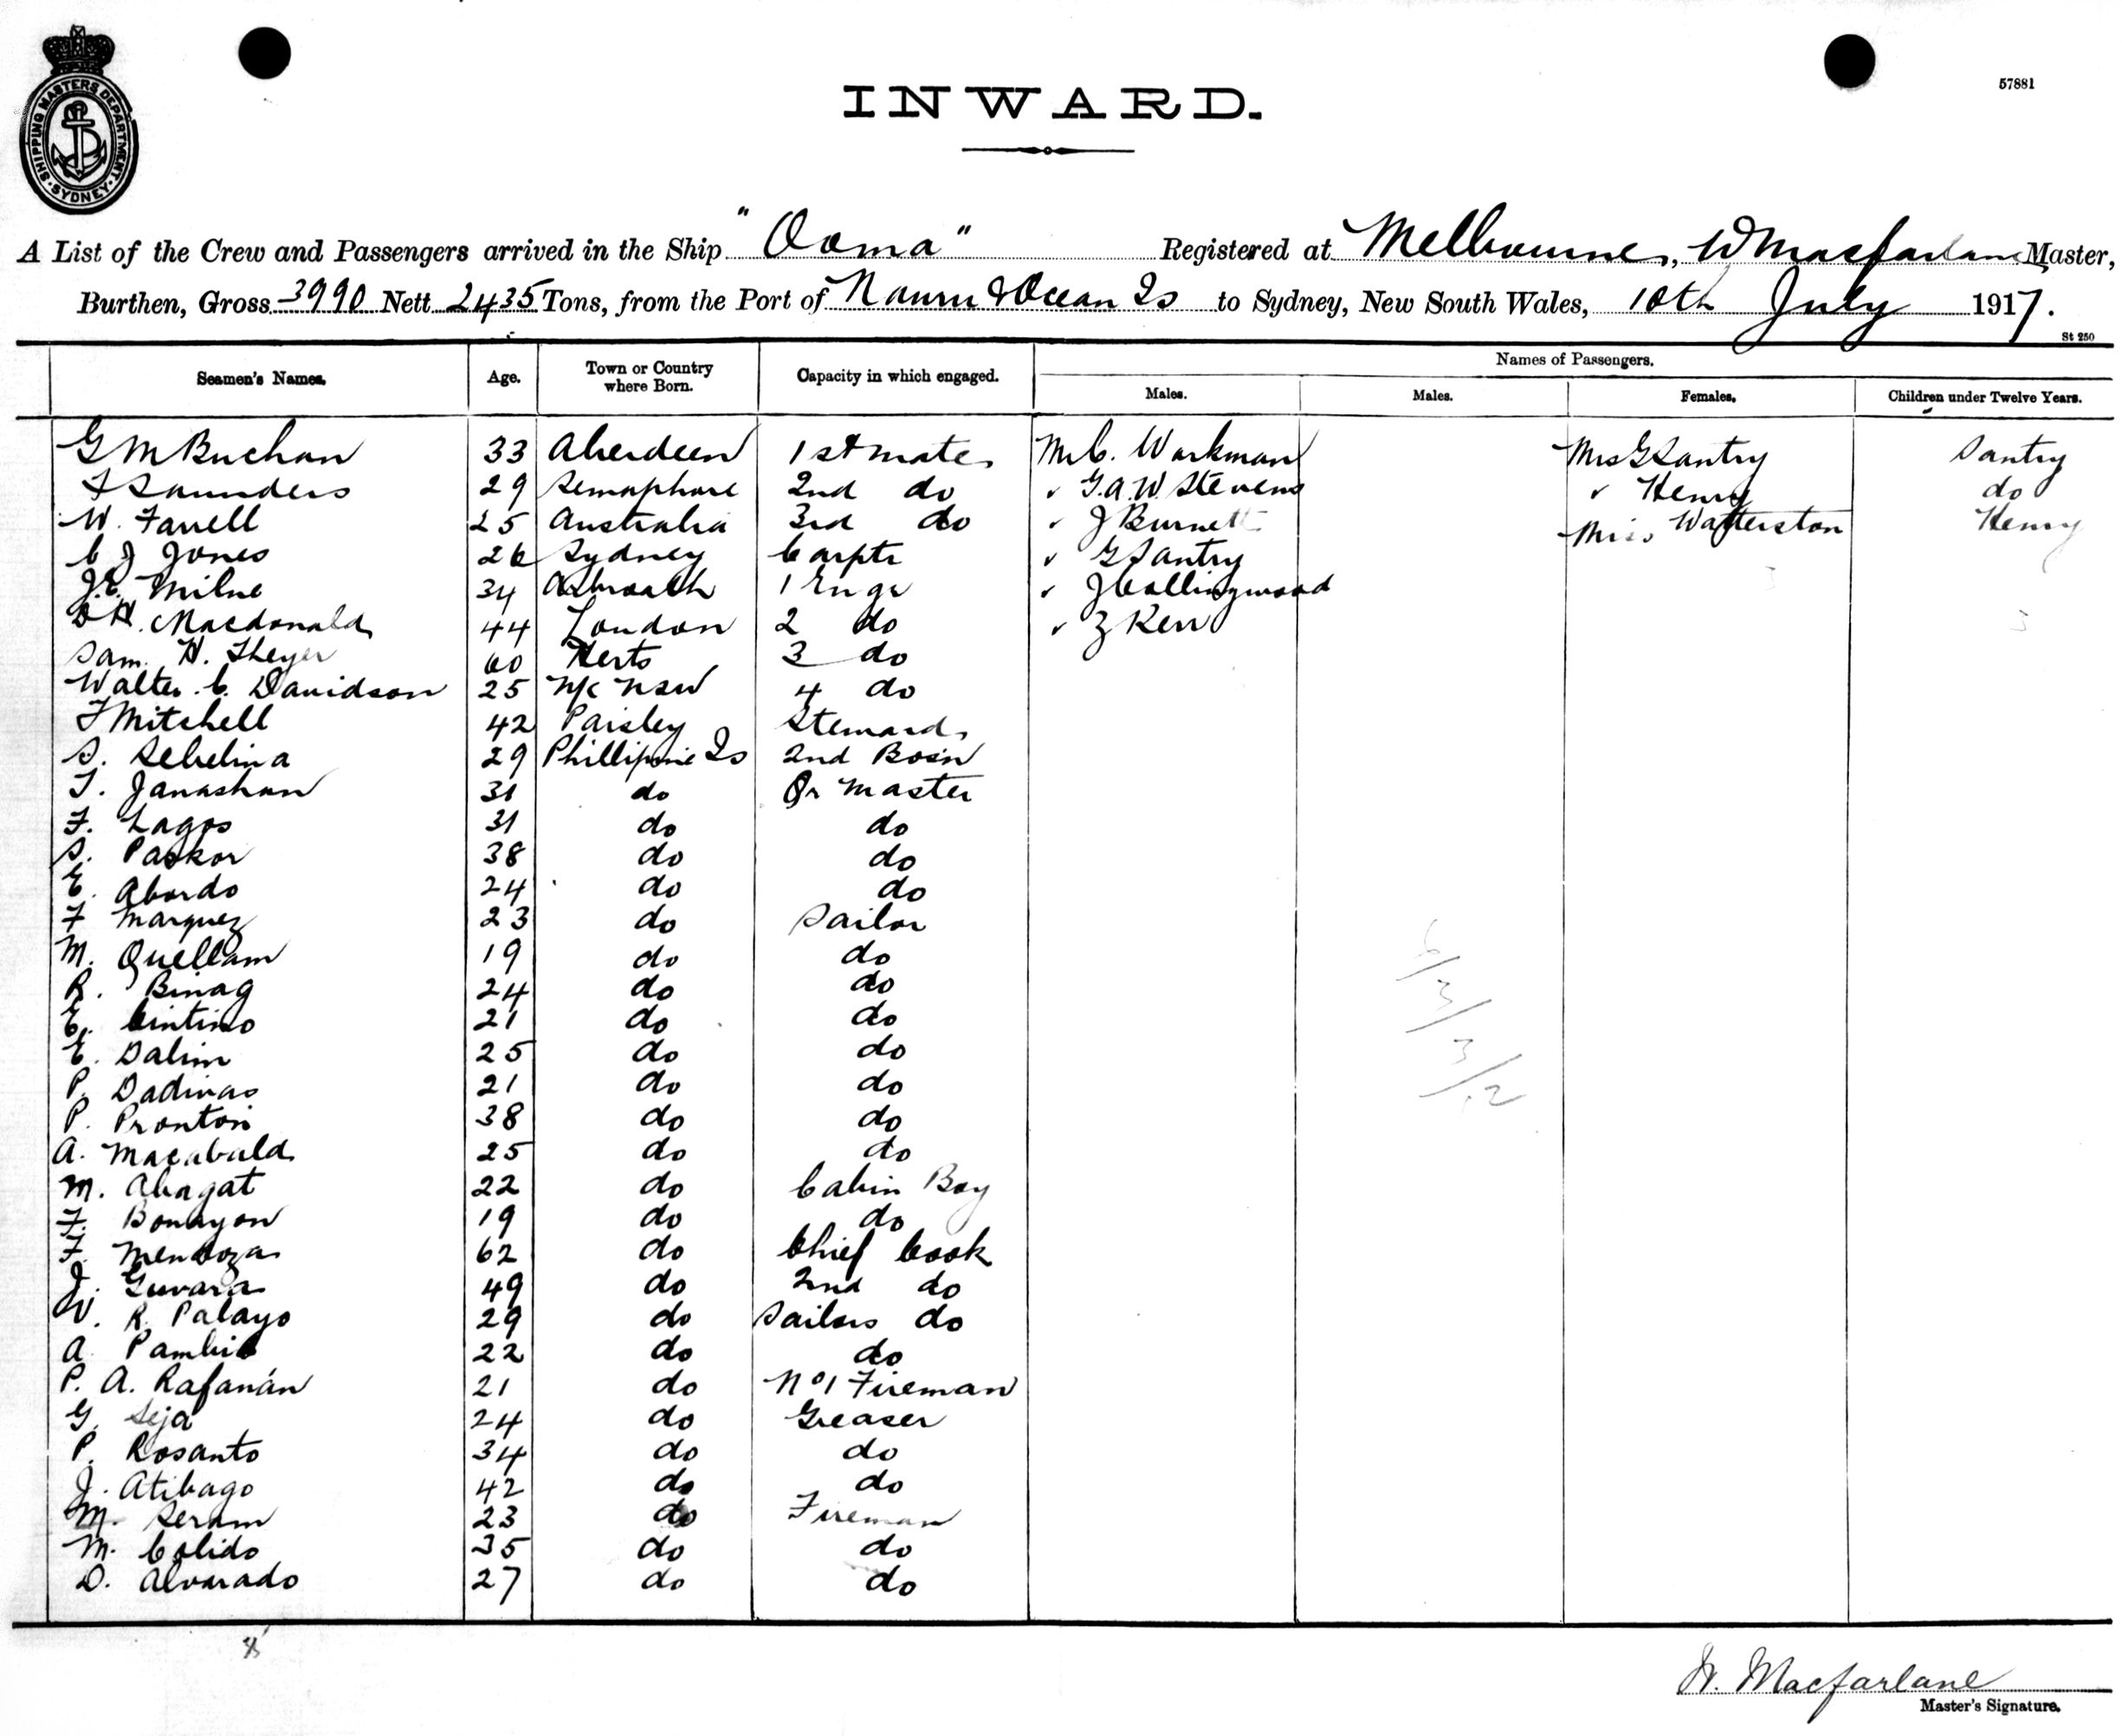 SHIPPING MASTERS DEPARTMENT
SYDNEY
57881
INWARD.
A List of the Crew and Passengers arrived in the Ship "Ooma" Registered at Melbourne, W Macfarlane Master,
Burthen, Gross 3990 Nett 2435 Tons, from the Port of Nauru & Ocean Is to Sydney, New South Wales, 10th July 1917.
St 250
Seamen's Names. Age. Town or Country where Born. Capacity in which engaged. Names of Passengers.
Males. Males. Females. Children under Twelve Years.
G M Buchan 33 Aberdeen 1st mate Mr C. Workman Mrs G Santry Santry
F Saunders 29 Semaphore 2nd do G.A.W. Stevens Henry do
W. Farrell 25 Australia 3rd do J Burnett Miss Watterston Henry
C J Jones 26 Sydney Carptr G Santry
J.C. Milne 34 Arbroath 1 Engr J Collingwood
D H. Macdonald 44 London 2 do Z Kerr
Sam. H. Theyer 60 Herts 3 do
Walter C. Davidson 25 N/c NSW 4 do
F Mitchell 42 Paisley Steward
S. Sebelina 29 Phillipine Is 2nd Bosn
T. Janashan 31 do Qr Master
F. Lagos 31 do do
S. Paskor 38 do do
E. Abordo 24 do do
F Marquez 23 do Sailor
M. Quellam 19 do do
R. Binag 24 do do
E. Cintino 21 do do
E. Dalim 25 do do
P. Dadinas 21 do do
P. Pronton 38 do do
A. Macabuld 25 do do
M. Abagat 22 do Cabin Boy
F. Bonayon 19 do do
F. Mendoza 62 do Chief Cook
J. Guvara 49 do 2nd do
V. R. Palayo 29 do Sailors do
A. 22 do do
P. A. Rafanán 21 do No 1 Fireman
G. Seja 24 do Greaser
P. Rosanto 34 do do
J. Atibago 42 do do
M. Seram 23 do Fireman
M. Colido 35 do do
D. Alvarado 27 do do
6/3/3/2
W. Macfarlane
Master's Signature.